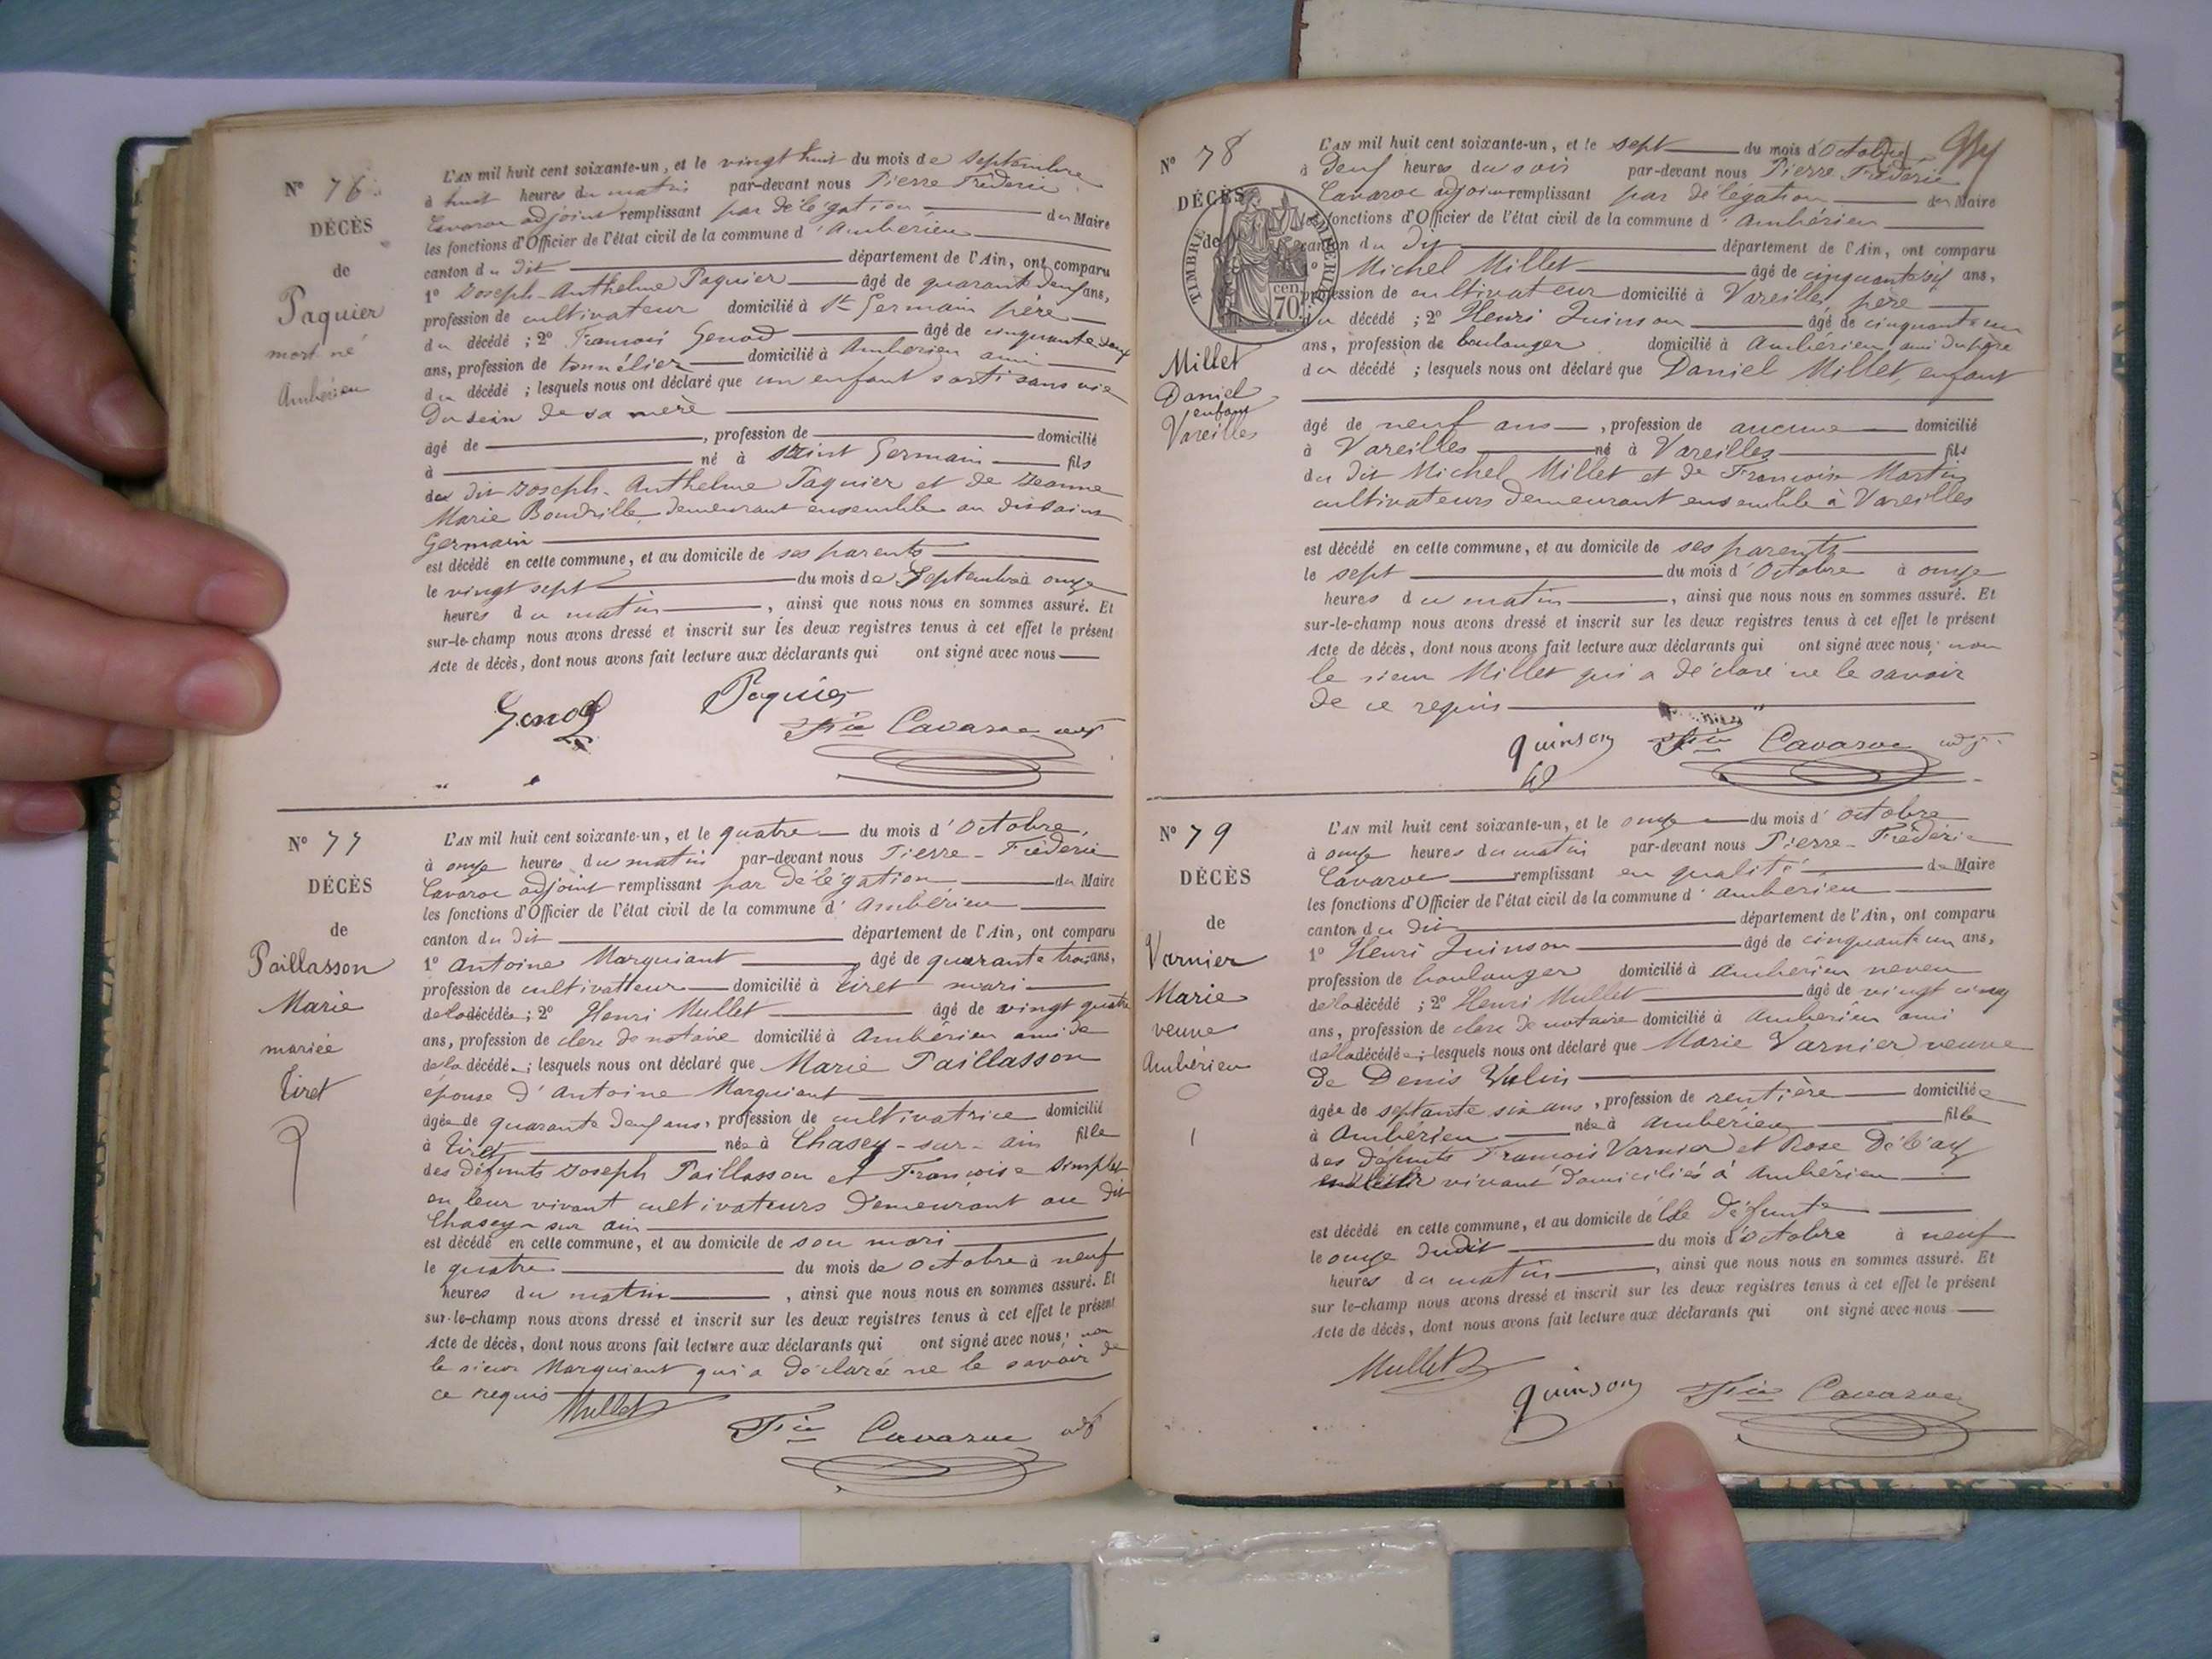 N° 76
DÉCÈS
de
Paquier
mort né
Ambérieu
L'AN mil huit cent soixante-un, et le vingt huit du mois de Septembre
à huit heures du matin par-devant nous Pierre Fréderic
Cavaroc adjoint remplissant par délégation du Maire
les fonctions d'Officier de l'état civil de la commune d'Ambérieu
canton du dit département de l'Ain, ont comparu
1° Joseph-Anthelme Paquier âgé de quarante deux ans,
profession de cultivateur domicilié à St Germain père
du décédé ; 2° François Genod âgé de cinquante deux
ans, profession de tonnélier domicilié à Ambérieu ami
du décédé ; lesquels nous ont déclaré que un enfant sorti sans vie
du sein de sa mère
âgé de , profession de domicilié
à né à Saint Germain fils
du dit Joseph-Anthelme Paquier et de Jeanne
Marie Boudrille demeurant ensemble au dit Saint
Germain
est décédé en cette commune, et au domicile de ses parents
le vingt sept du mois de Septembre à onze
heures du matin , ainsi que nous nous en sommes assuré. Et
sur-le-champ nous avons dressé et inscrit sur les deux registres tenus à cet effet le présent
Acte de décès, dont nous avons fait lecture aux déclarants qui ont signé avec nous
Genod Paquier
Fic Cavaroc adj
N° 77
DÉCÈS
de
Paillasson
Marie
mariée
Tiret
L'AN mil huit cent soixante-un, et le quatre du mois d'Octobre,
à onze heures du matin par-devant nous Pierre-Fréderic
Cavaroc adjoint remplissant par délégation du Maire
les fonctions d'Officier de l'état civil de la commune d'Ambérieu
canton du dit département de l'Ain, ont comparu
1° Antoine Marquiant âgé de quarante trois ans,
profession de cultivateur domicilié à Tiret mari
de la décédée ; 2° Henri Mullet âgé de vingt quatre
ans, profession de clerc de notaire domicilié à Ambérieu ami de
de la décédé ; lesquels nous ont déclaré que Marie Paillasson
épouse d'Antoine Marquiant
âgée de quarante deux ans, profession de cultivatrice domicilié
à Tiret née à Chasey-sur-ain fille
des défunts Joseph Paillasson et Françoise Simplet
en leur vivant cultivateurs demeurant au dit
Chasey-sur ain
est décédé en cette commune, et au domicile de son mari
le quatre du mois de Octobre à neuf
heures du matin , ainsi que nous nous en sommes assuré. Et
sur-le-champ nous avons dressé et inscrit sur les deux registres tenus à cet effet le présent
Acte de décès, dont nous avons fait lecture aux déclarants qui ont signé avec nous, non
le sieur Marquiant qui a déclaré ne le savoir de
ce requis
Mullet
Fic Cavaroc adj
N° 78
DÉCÈS
de
TIMBRE IMPÉRIAL
70 cen.
Millet
Daniel
enfant
Vareilles
L'AN mil huit cent soixante-un, et le sept du mois d'Octobre
à deux heures du soir par-devant nous Pierre Fréderic
Cavaroc adjoint remplissant par délégation du Maire
les fonctions d'Officier de l'état civil de la commune d'Ambérieu
canton du dit département de l'Ain, ont comparu
1° Michel Millet âgé de cinquante six ans,
profession de cultivateur domicilié à Vareilles père
du décédé ; 2° Henri Quinson âgé de cinquante un
ans, profession de boulanger domicilié à Ambérieu, ami du père
du décédé ; lesquels nous ont déclaré que Daniel Millet, enfant
âgé de neuf ans , profession de aucune domicilié
à Vareilles né à Vareilles fils
du dit Michel Millet et de Françoise Martin
cultivateurs demeurant ensemble à Vareilles
est décédé en cette commune, et au domicile de ses parents
le sept du mois d'Octobre à onze
heures du matin , ainsi que nous nous en sommes assuré. Et
sur-le-champ nous avons dressé et inscrit sur les deux registres tenus à cet effet le présent
Acte de décès, dont nous avons fait lecture aux déclarants qui ont signé avec nous, non
le sieur Millet qui a déclaré ne le savoir
de ce requis
quinson Fic Cavaroc adj
N° 79
DÉCÈS
de
Varnier
Marie
veuve
Ambérieu
L'AN mil huit cent soixante-un, et le onze du mois d'octobre
à onze heures du matin par-devant nous Pierre-Fréderic
Cavaroc remplissant en qualité de Maire
les fonctions d'Officier de l'état civil de la commune d'Ambérieu
canton du dit département de l'Ain, ont comparu
1° Henri Quinson âgé de cinquante un ans,
profession de boulanger domicilié à Ambérieu neveu
de la décédé ; 2° Henri Mullet âgé de vingt cinq
ans, profession de clerc de notaire domicilié à Ambérieu ami
de la décédée ; lesquels nous ont déclaré que Marie Varnier veuve
de Denis Vulin
âgée de septante six ans , profession de rentière domiciliée
à Ambérieu née à Ambérieu fille
des défunts François Varnier et Rose
vivant domiciliés à Ambérieu
est décédé en cette commune, et au domicile de la défunte
le onze dudit du mois d'Octobre à neuf
heures du matin , ainsi que nous nous en sommes assuré. Et
sur le-champ nous avons dressé et inscrit sur les deux registres tenus à cet effet le présent
Acte de décès, dont nous avons fait lecture aux déclarants qui ont signé avec nous
Mullet
quinson Fic Cavaroc